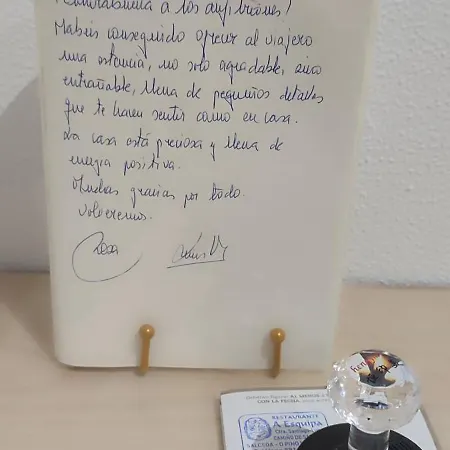 ¡Enhorabuena a los anfitriones!
Habéis conseguido ofrecer al viajero
una estancia, no solo agradable, sino
entrañable, llena de pequeños detalles
que te hacen sentir como en casa.
La casa está preciosa y llena de
energía positiva.
Muchas gracias por todo.
Volveremos.
Rosa
CON LA FECHA
RESTAURANTE
A Esquipa